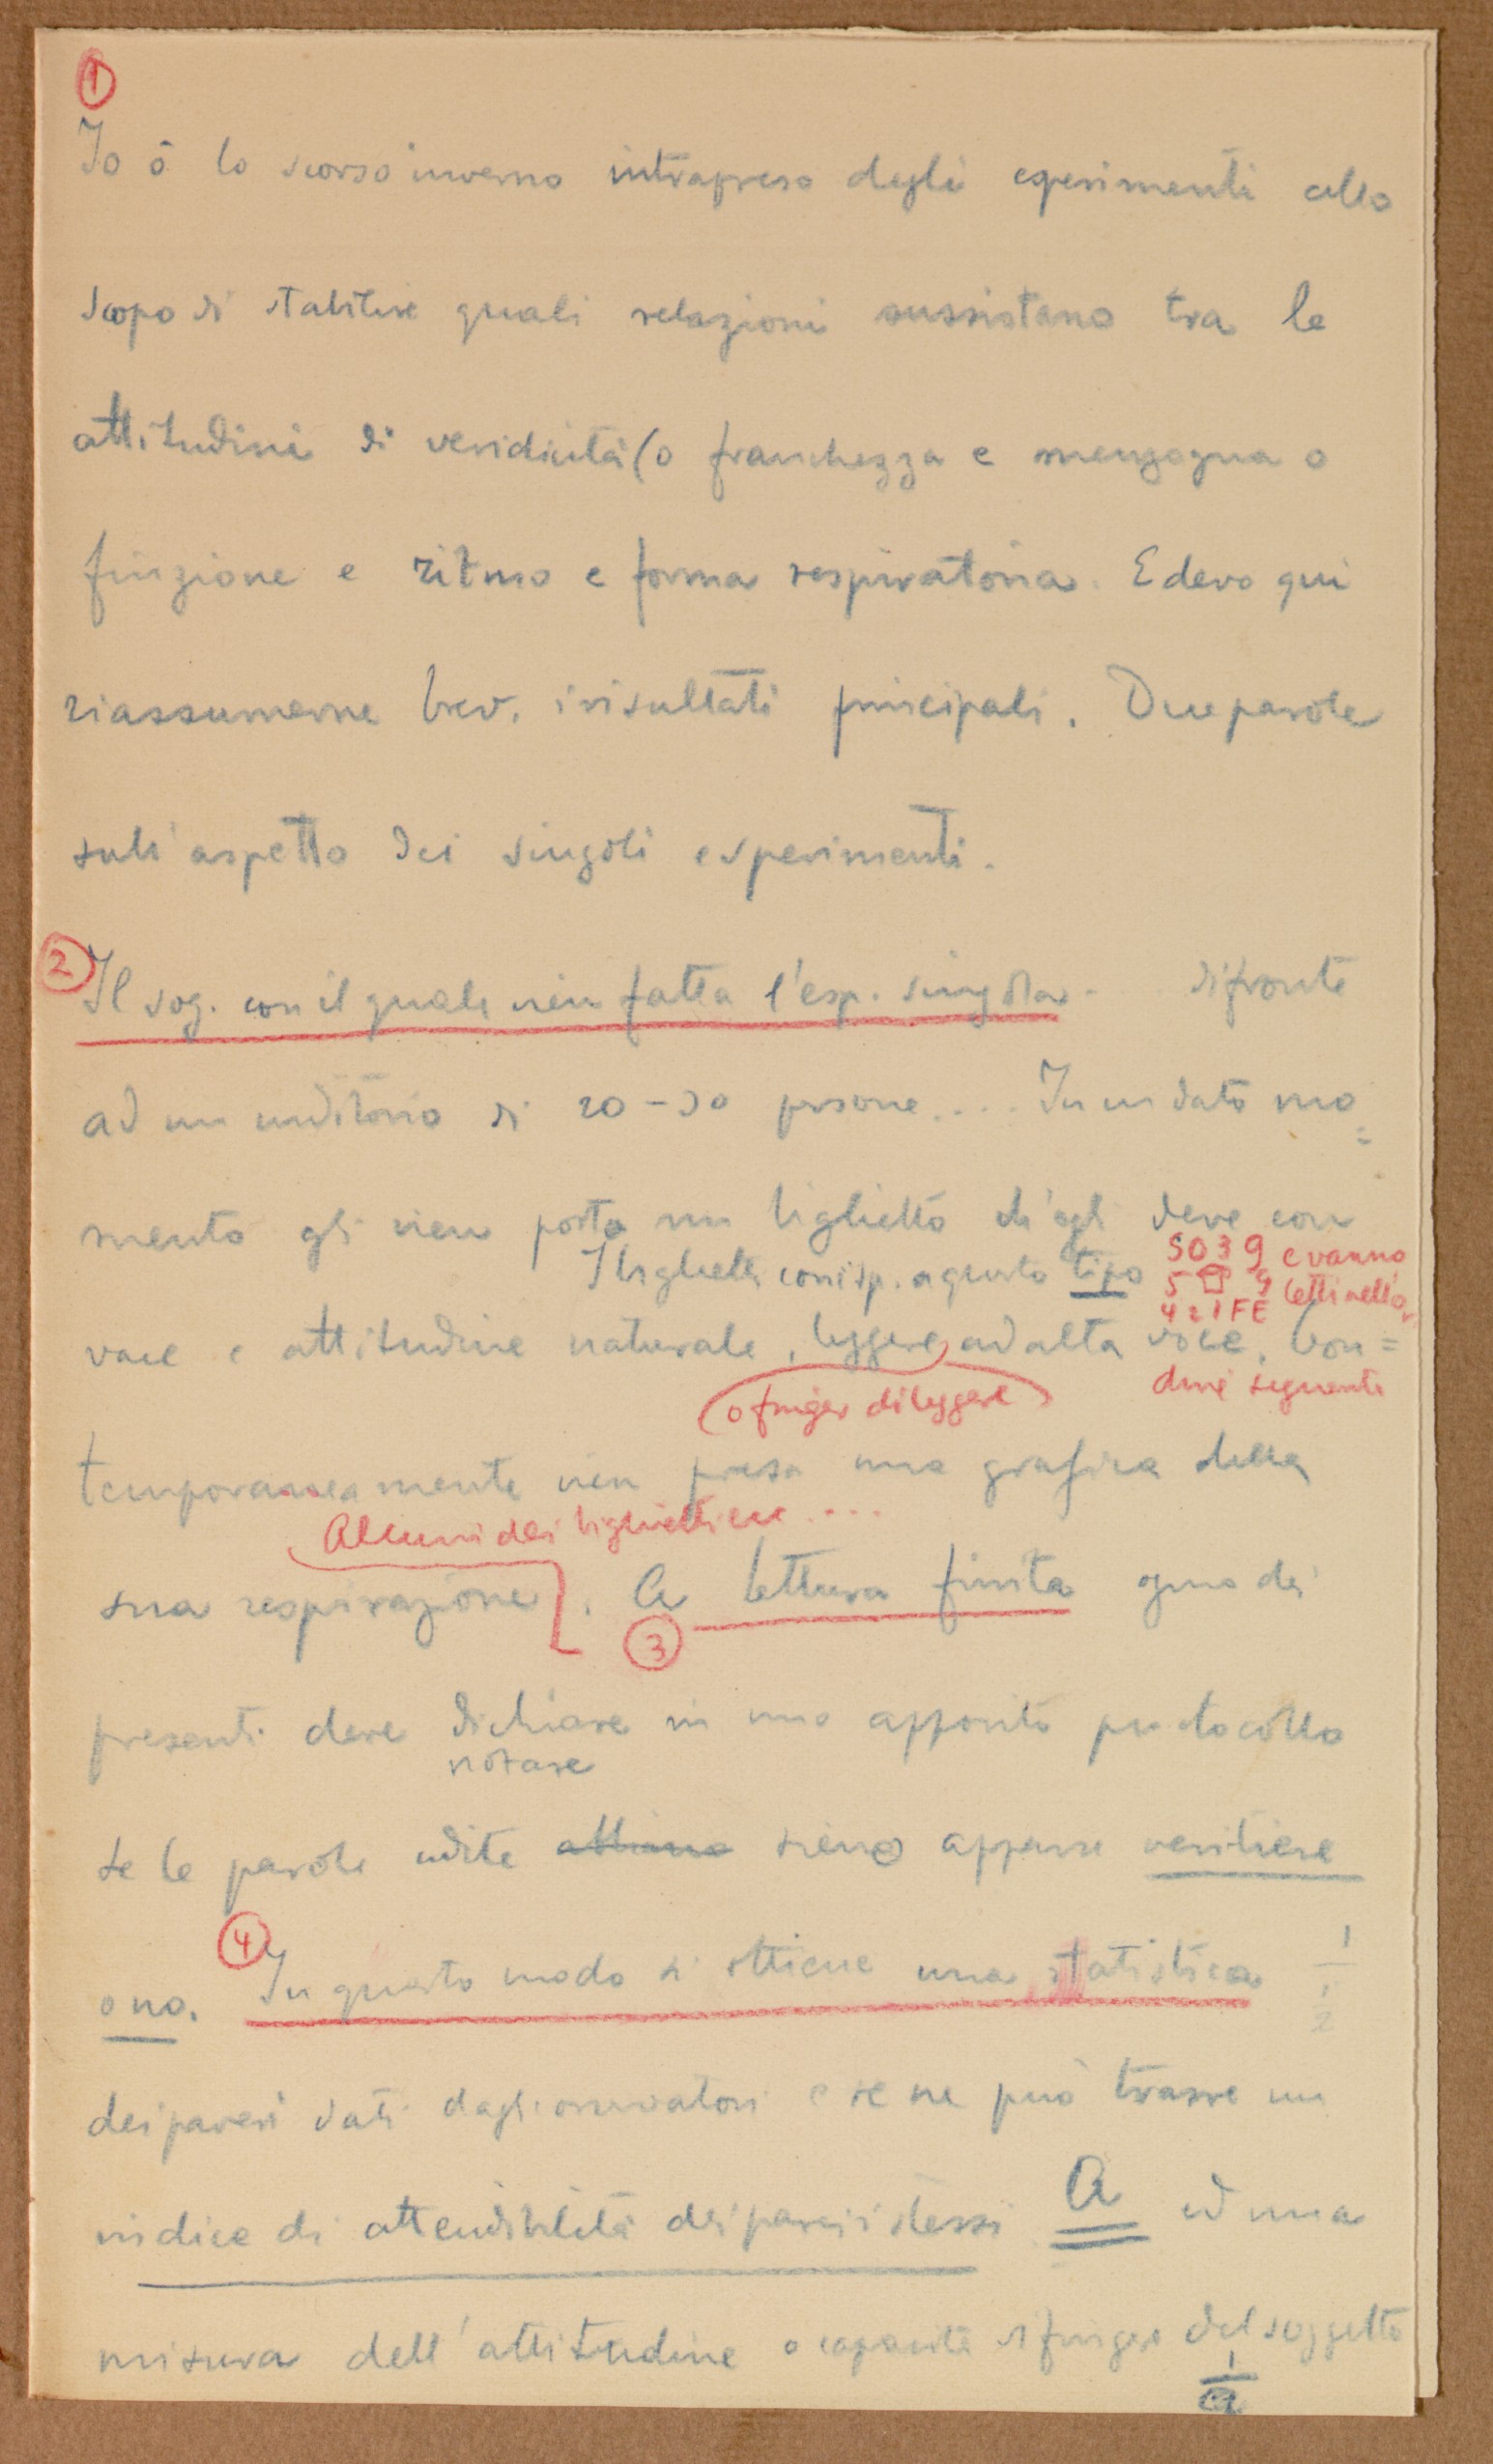 1
Io ò lo scorso inverno intrapreso degli esperimenti collo
scopo di stabilire quali relazioni sussistano tra le
attitudini di veridicità (o franchezza e menzogna o
finzione e ritmo e forma respiratoria. E devo qui
riassumerne brev. i risultati principali. Due parole
sull'aspetto dei singoli esperimenti.
2
Il sog. con il quale vien fatta l'esp. singola - di fronte
ad un uditorio di 20-30 persone.... In un dato mo=
mento gli vien porto un biglietto ch'egli deve con
I biglietti corrisp. a questo tipo
5039 e vanno
5 □ 9 letti nell'o
421FE
voce e attitudine naturale, leggere ad alta voce. Con=
dine seguente
(o finger di leggere)
temporaneamente vien presa una grafica della
Alcuni dei biglietti ecc....
sua respirazione]. A lettura finita ognuno dei
3
presenti deve dichiare in uno apposito protocollo
notare
se le parole udite sieno apparse veritiere
o no.
4
In questo modo si ottiene una statistica
1
1
2
dei pareri dati dagli osservatori e se ne può trarre un
indice di attendibilità dei pareri stessi A ed una
misura dell'attitudine o capacità di fingere del soggetto
1
a